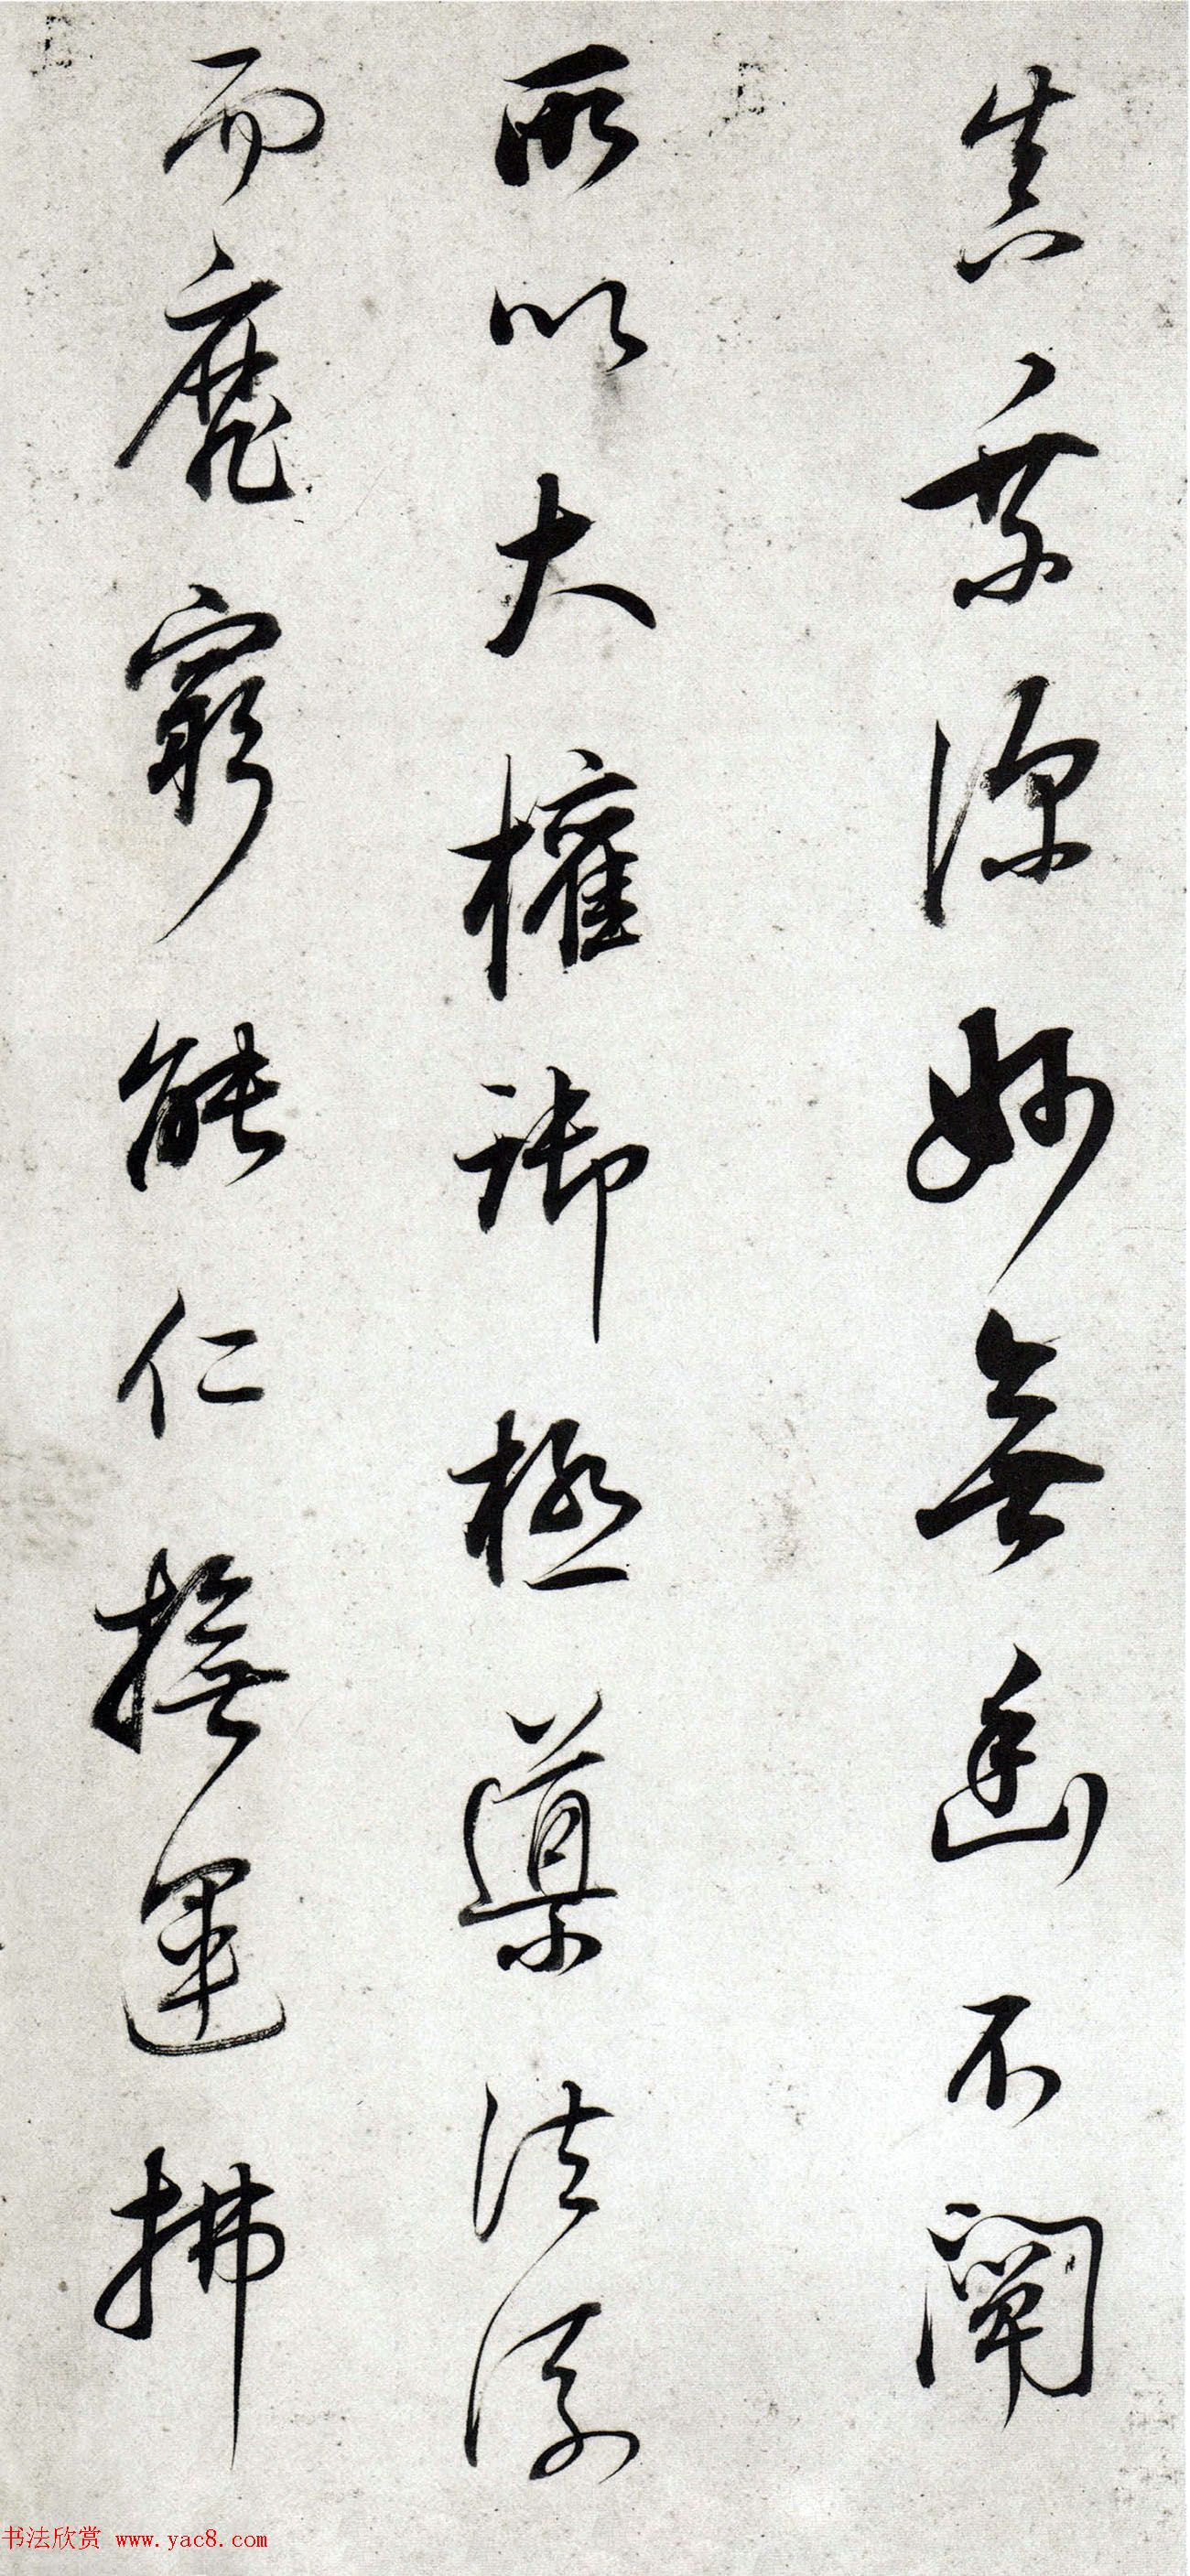 真業深妙無幽不闡
所以大權御極導法流
而靡窮能仁撫運拂
书法欣赏 www.yac8.com